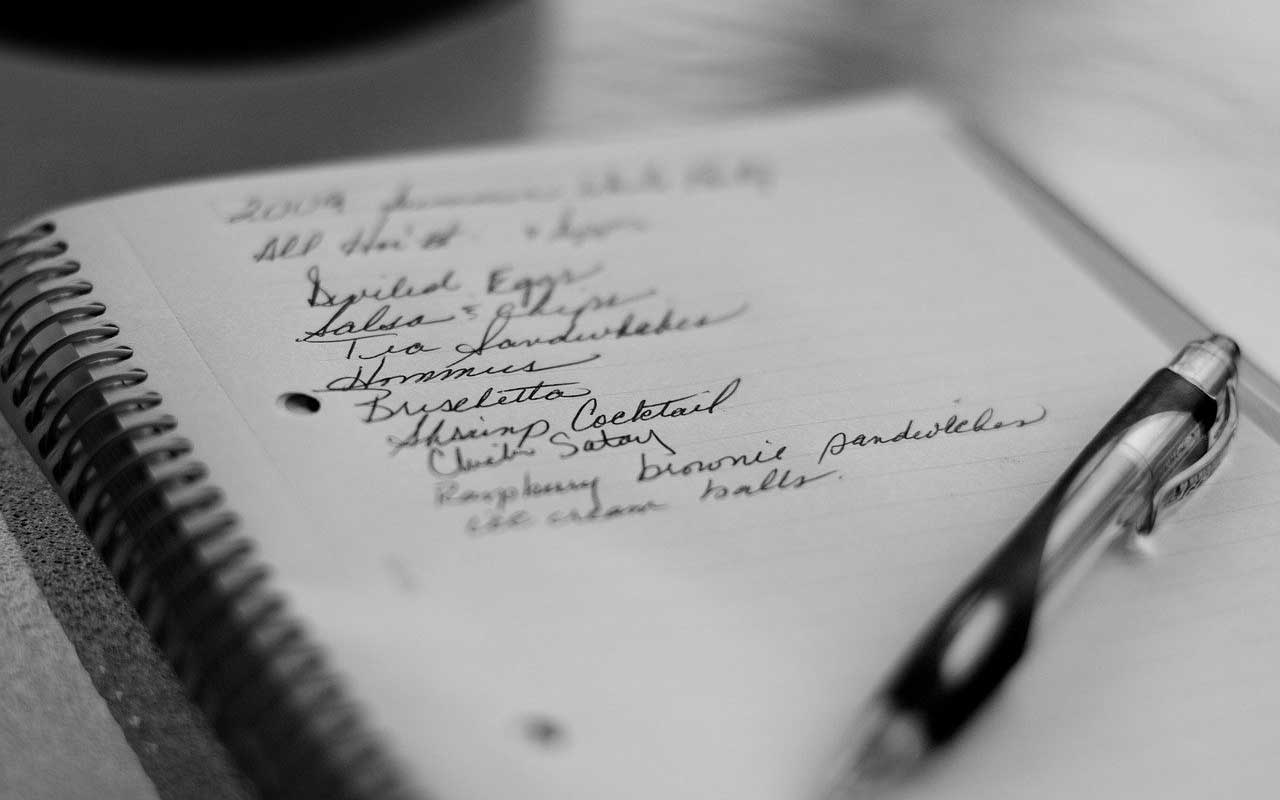 2009 Summer White Party
All Hor's
Deviled Eggs
Salsa & Chips
Tea Sandwhches
Hommus
Bruschetta
Shrimp Cocktail
Chicken Satay
Raspberry brownie sandwiches
ice cream balls.